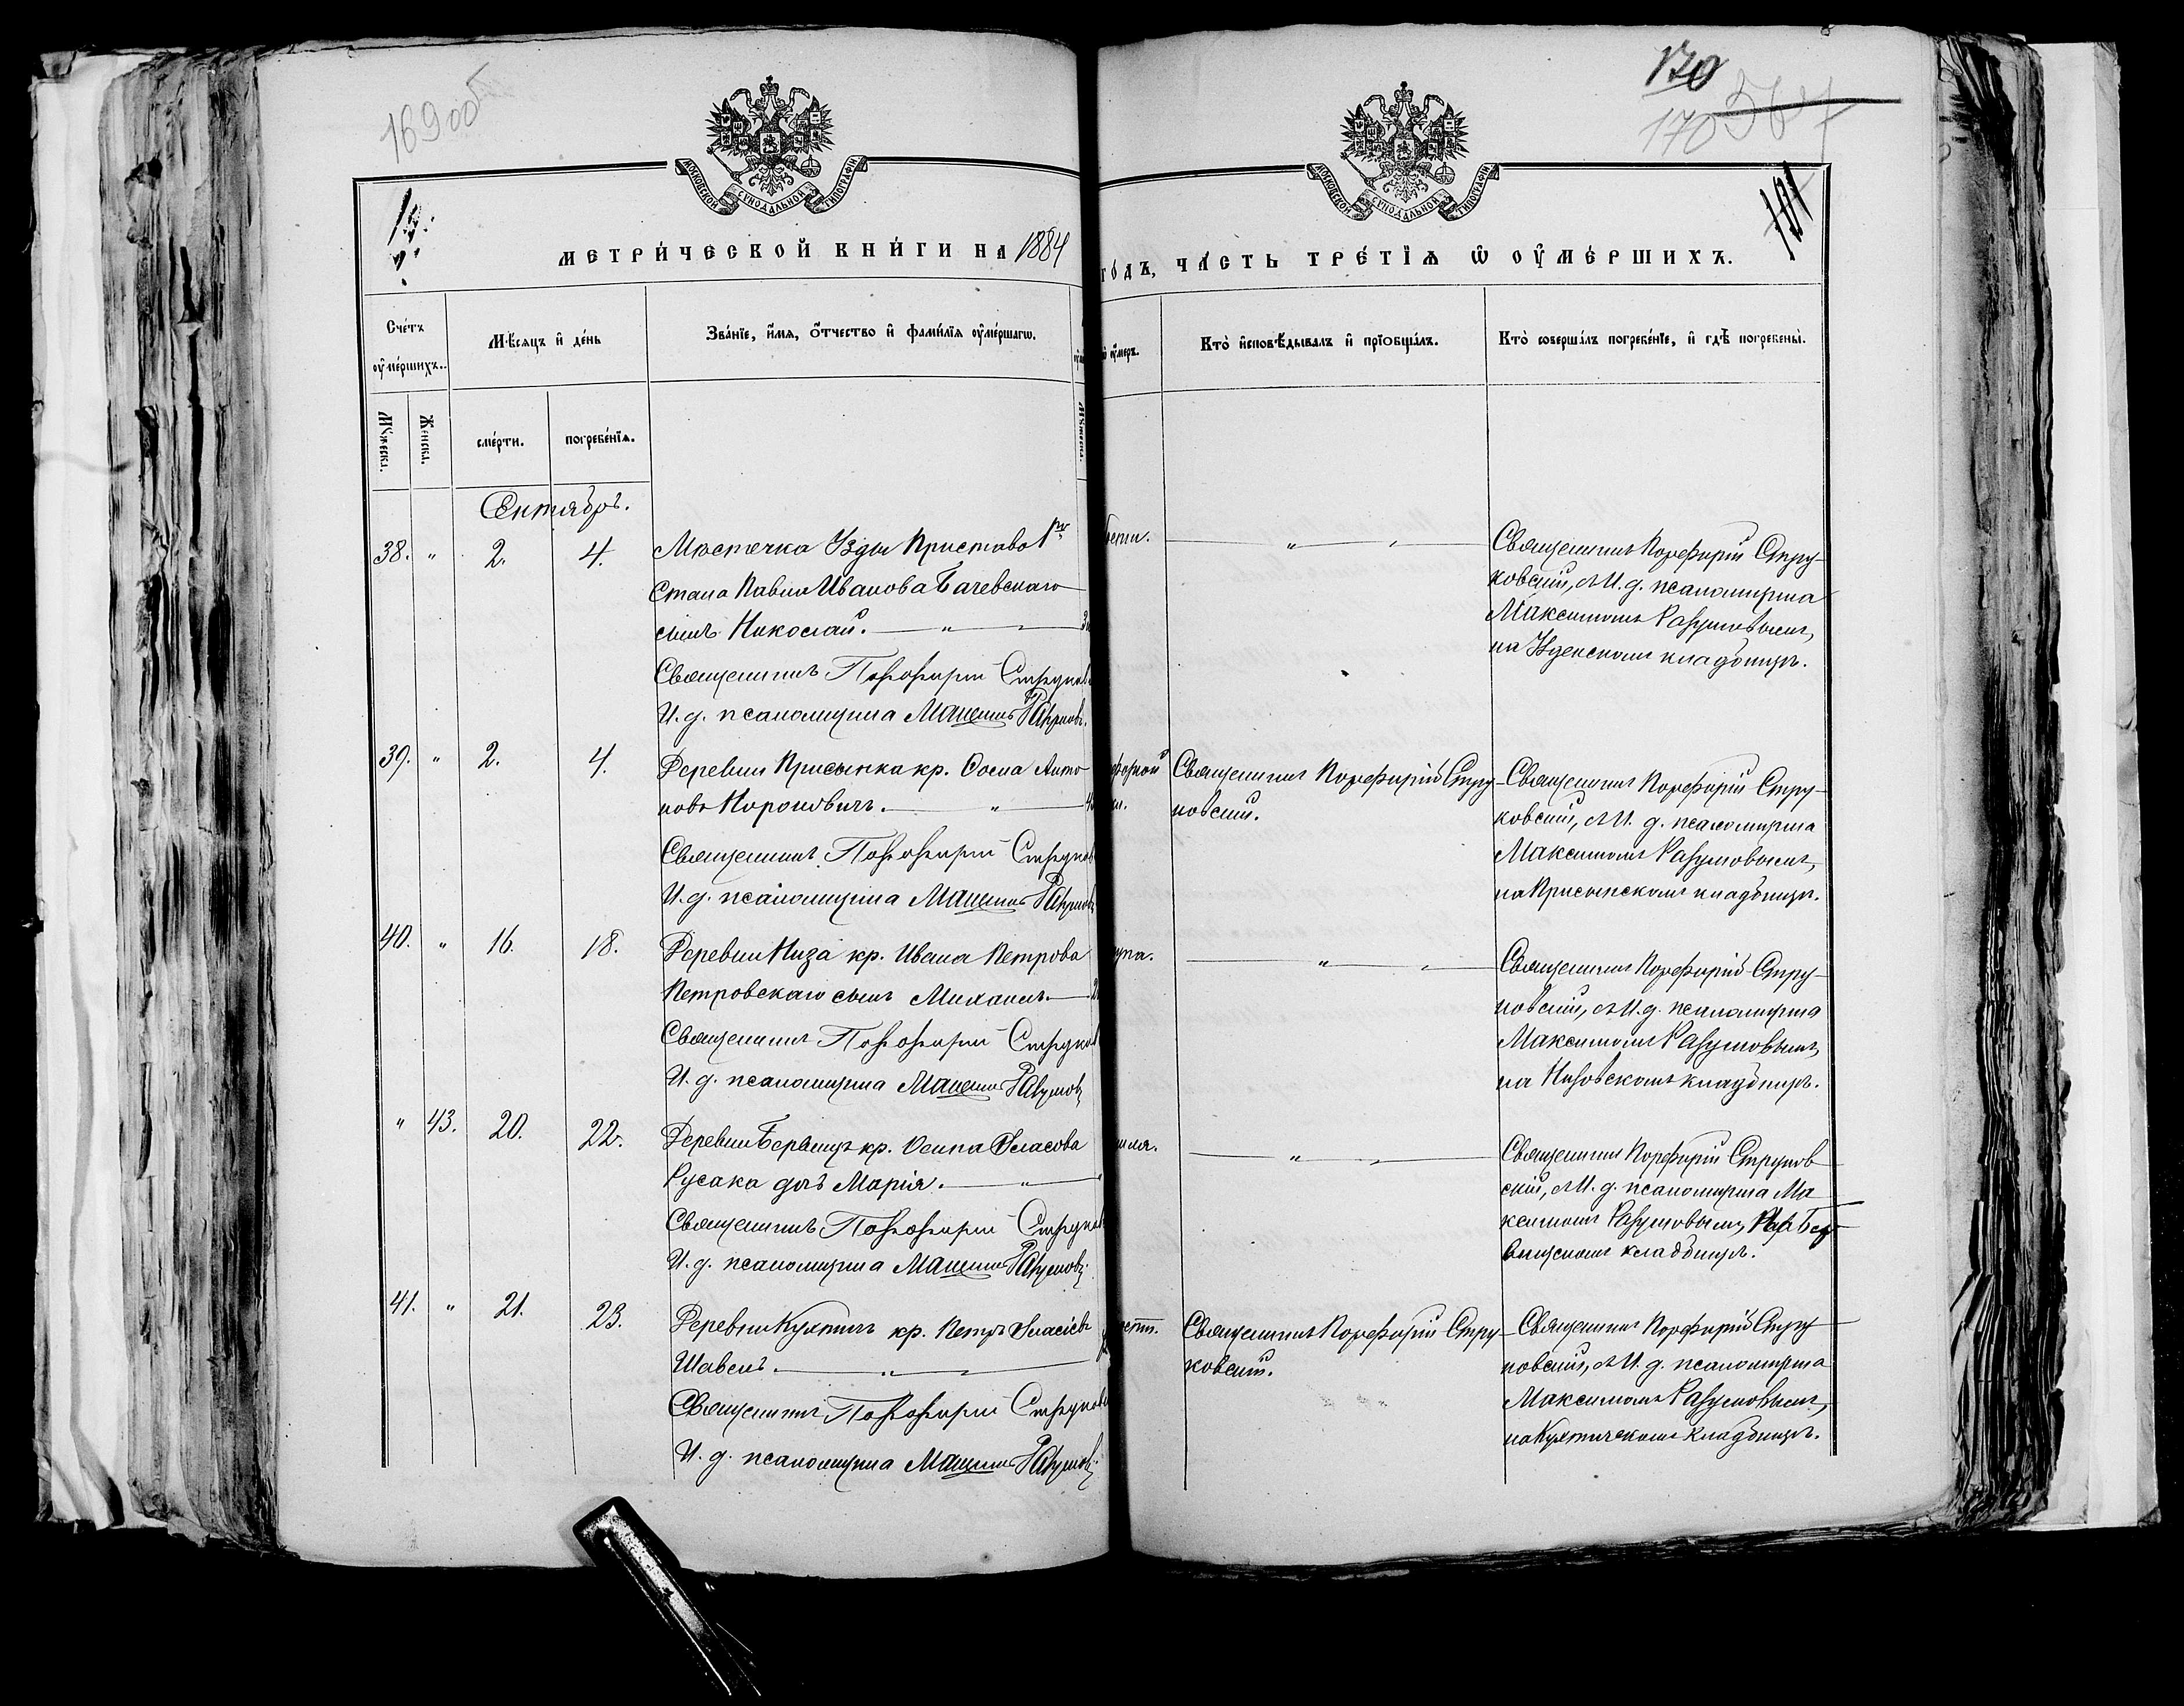 169 об
170
170
МОСКОВСКОЙ СѴНОДАЛЬНОЙ ТИПОГРАФІИ
МОСКОВСКОЙ СѴНОДАЛЬНОЙ ТИПОГРАФІИ
МЕТРИ́ЧЕСКОЙ КНИ́ГИ НА 1884
ГО́ДЪ, ЧА́СТЬ ТРЕ́ТІѦ Ѡ ОУ҆МЕ́РШИХЪ.
Сче́тъ оу҆ме́ршихъ.
Мѣ́сяцъ и҆ де́нь
Зва́нїе, и҆́мя, ѻ҆́тчество и҆ фами́лїя оу҆ме́ршагѡ.
оу҆меръ.
Кто̀ и҆сповѣ́дывалъ и҆ прїобща́лъ.
Кто̀ соверша́лъ погребе́нїе, и҆ гдѣ̀ погребены̀.
Мꙋжескъ.
Женскъ.
сме́рти.
погребе́нїя.
Сентябрь.
38. " 2. 4. Мѣстечка Узды Пристава 1го
Стана Павла Иванова Бачевскаго
сынъ Николай. — " —
Священникъ Порфирій Струков
И. д. псаломщика Максимъ Разумов
— " —
Священникъ Порфирій Стру-
ковскій, съ И. д. псаломщика
Максимомъ Разумовымъ,
на Узденскомъ кладбищѣ.
39. " 2. 4. Деревни Присынка кр. Ѳома Анто
новъ Короновичъ. — " —
Священникъ Порфирій Струков
И. д. псаломщика Максимъ Разумов
Священникъ Порфирій Стру-
ковскій.
Священникъ Порфирій Стру-
ковскій, съ И. д. псаломщика
Максимомъ Разумовымъ,
на Присынскомъ кладбищѣ.
40. " 16. 18. Деревни Низа кр. Ивана Петрова
Петровскаго сынъ Михаилъ. —
Священникъ Порфирій Струков
И. д. псаломщика Максимъ Разумов
— " —
Священникъ Порфирій Стру-
ковскій, съ И. д. псаломщика
Максимомъ Разумовымъ,
на Низовскомъ кладбищѣ.
" 43. 20. 22. Деревни кр. Осипа Власова
Русака дочь Марія. — " —
Священникъ Порфирій Струков
И. д. псаломщика Максимъ Разумов
— " —
Священникъ Порфирій Струков-
скій, съ И. д. псаломщика Ма-
ксимомъ Разумовымъ, на
кладбищѣ.
41. " 21. 23. Деревни Кухтичъ кр. Петръ Власіевъ
Шавель. — " —
Священникъ Порфирій Струков
И. д. псаломщика Максимъ Разумов
Священникъ Порфирій Стру-
ковскій.
Священникъ Порфирій Стру-
ковскій, съ И. д. псаломщика
Максимомъ Разумовымъ,
на Кухтическомъ кладбищѣ.